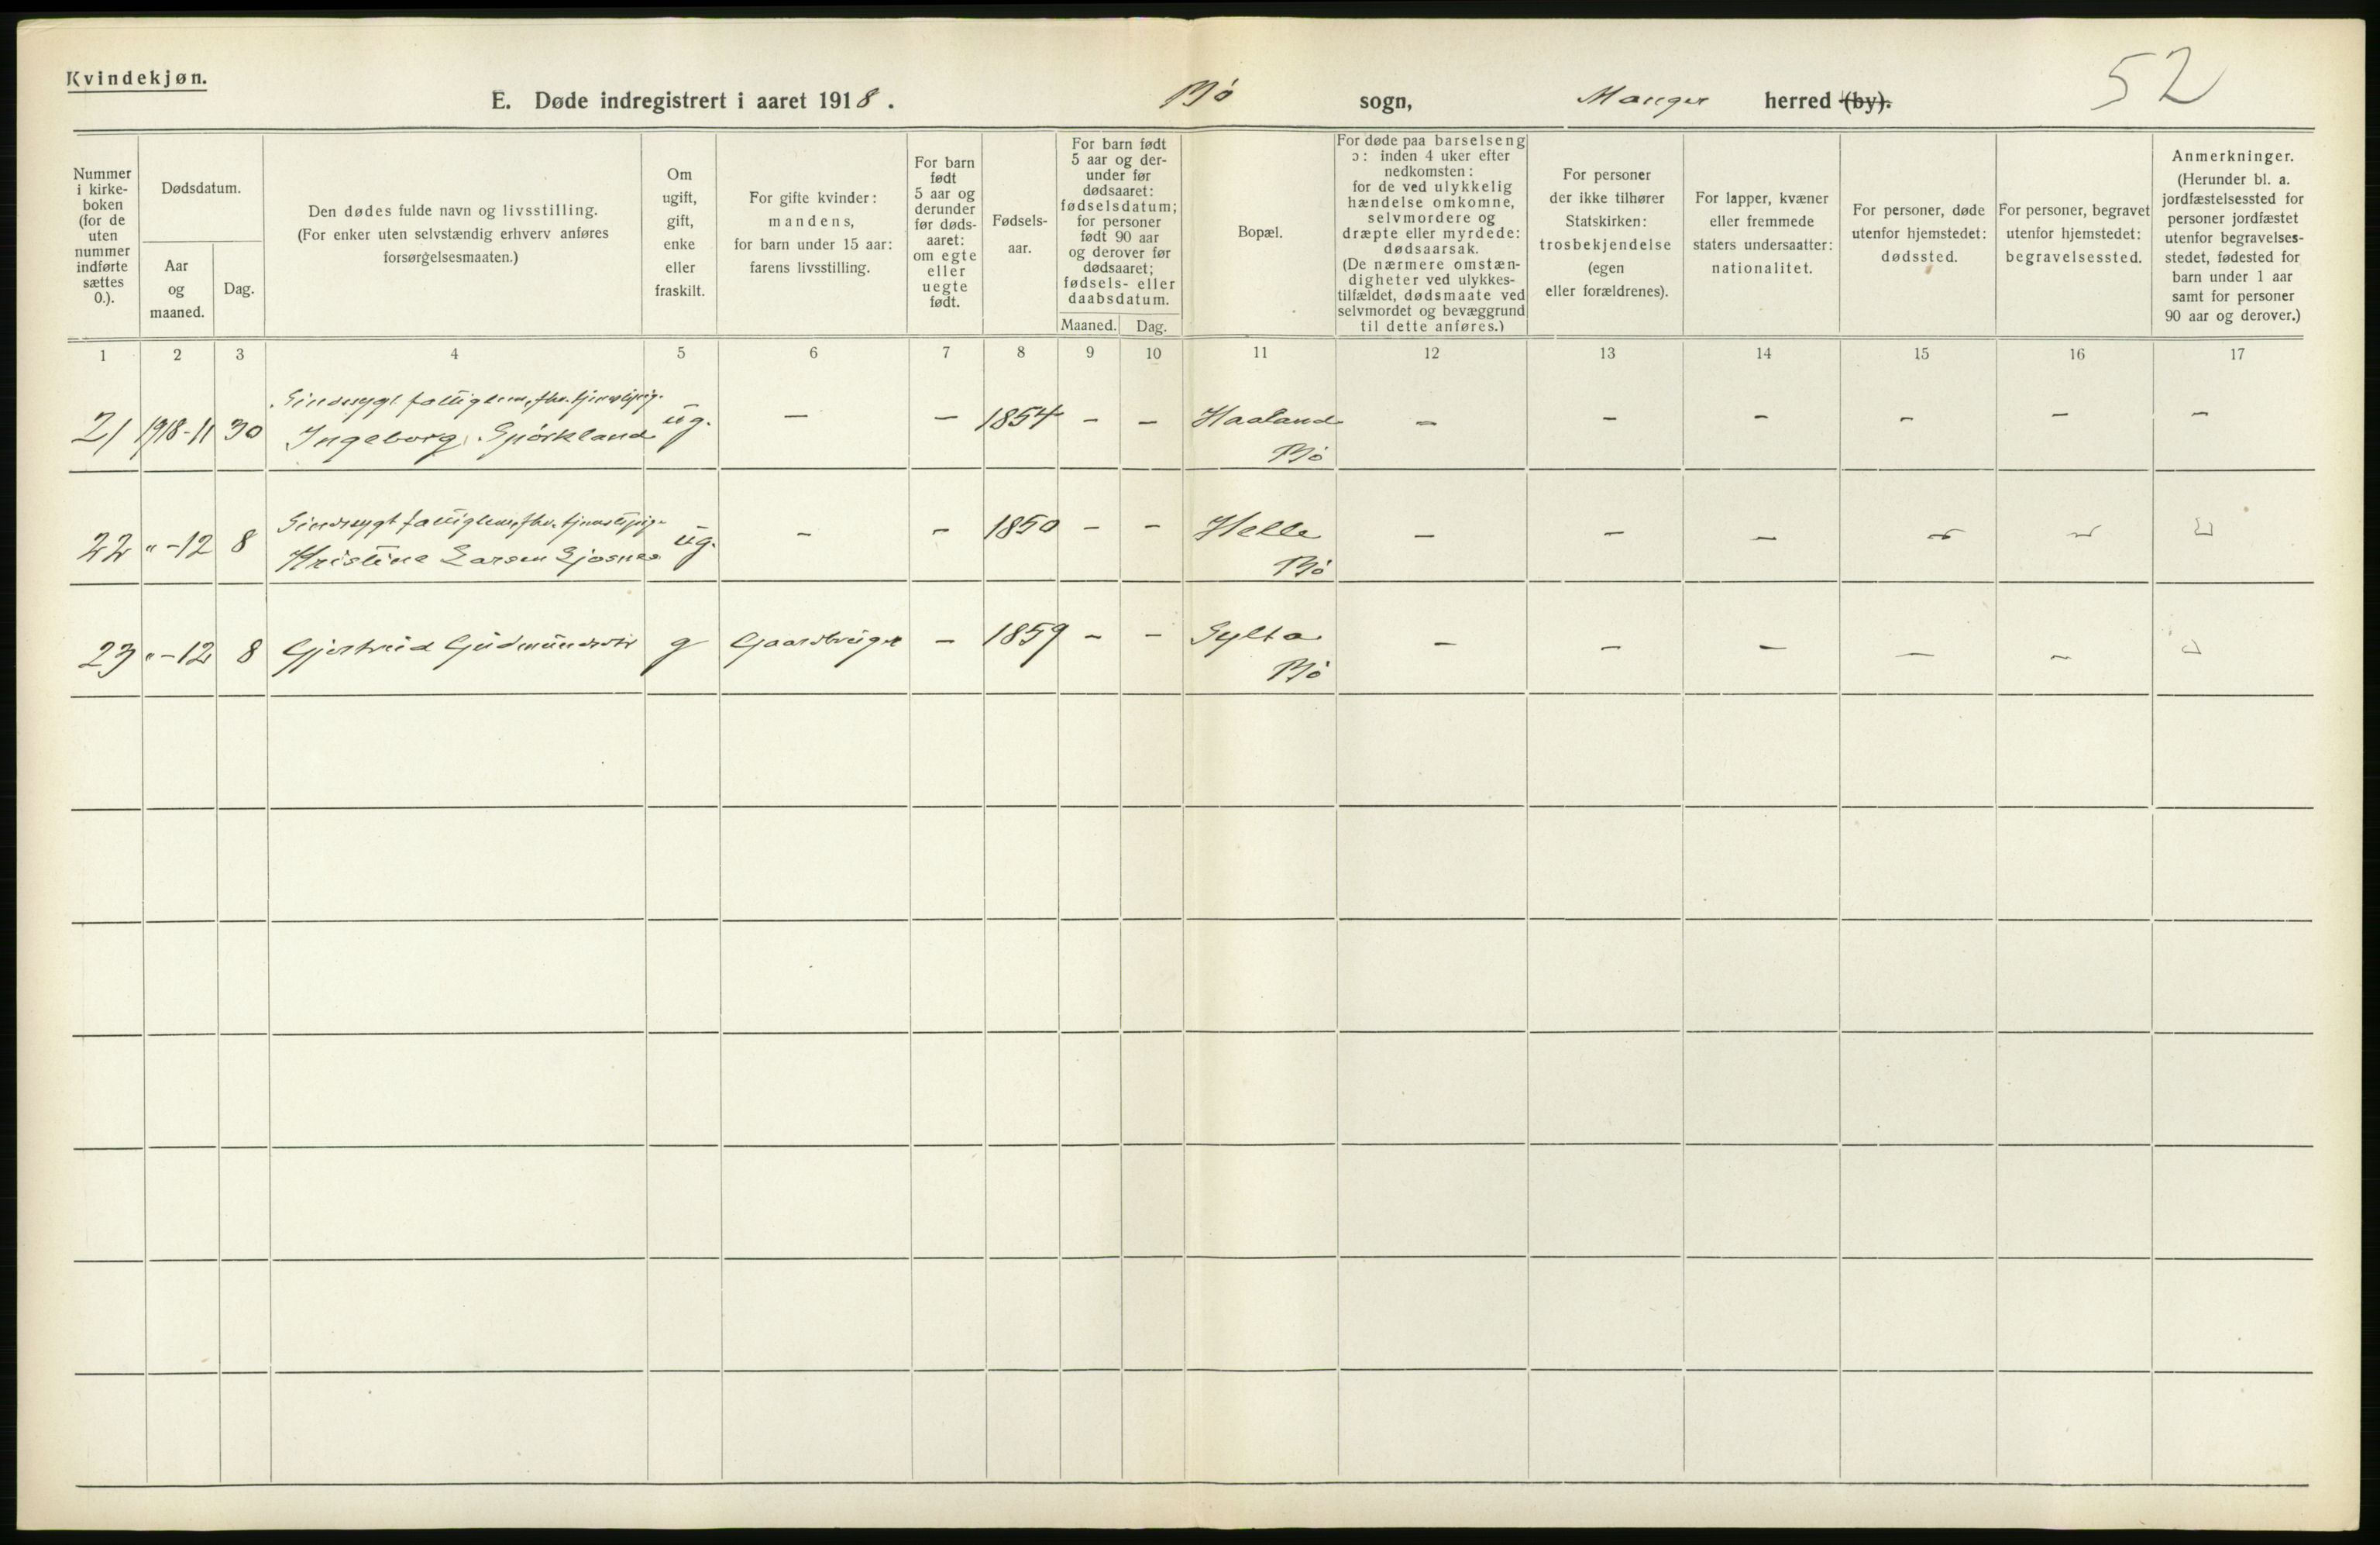 Kvindekjøn.
52
E. Døde indregistrert i aaret 1918. Bø sogn, Manger herred (by).
Nummer
i kirke-
boken
(for de
uten
nummer
indførte
sættes
0.).
Dødsdatum.
Aar
og
maaned.
Dag.
Den dødes fulde navn og livsstilling.
(For enker uten selvstændig erhverv anføres
forsørgelsesmaaten.)
Om
ugift,
gift,
enke
eller
fraskilt.
For gifte kvinder:
mandens,
for barn under 15 aar:
farens livsstilling.
For barn
født
5 aar og
derunder
før døds-
aaret:
om egte
eller
uegte
født.
Fødsels-
aar.
For barn født
5 aar og der-
under før
dødsaaret:
fødselsdatum;
for personer
født 90 aar
og derover før
dødsaaret;
fødsels- eller
daabsdatum.
Maaned. Dag.
Bopæl.
For døde paa barselseng
ɔ: inden 4 uker efter
nedkomsten:
for de ved ulykkelig
hændelse omkomne,
selvmordere og
dræpte eller myrdede:
dødsaarsak.
(De nærmere omstæn-
digheter ved ulykkes-
tilfældet, dødsmaate ved
selvmordet og bevæggrund
til dette anføres.)
For personer
der ikke tilhører
Statskirken:
trosbekjendelse
(egen
eller forældrenes).
For lapper, kvæner
eller fremmede
staters undersaatter:
nationalitet.
For personer, døde
utenfor hjemstedet:
dødssted.
For personer, begravet
utenfor hjemstedet:
begravelsessted.
Anmerkninger.
(Herunder bl. a.
jordfæstelsessted for
personer jordfæstet
utenfor begravelses-
stedet, fødested for
barn under 1 aar
samt for personer
90 aar og derover.)
1 2 3 4 5 6 7 8 9 10 11 12 13 14 15 16 17
Sindssygt fattiglem, fhv. tjenestepig.
21 1918-11 30 Ingeborg Spörkland ug. – – 1854 – – Haaland – – – – – –
Bø
Sindssygt fattiglem, fhv. tjenestepige
22 " -12 8 Kristine Larsen Gjosnes ug. – – 1850 – – Helle – – – – –
Bø
23 " -12 8 Gjertrud Gudmundsdtr g Gaardbruger – 1859 – – Sylta – – – – –
Bø